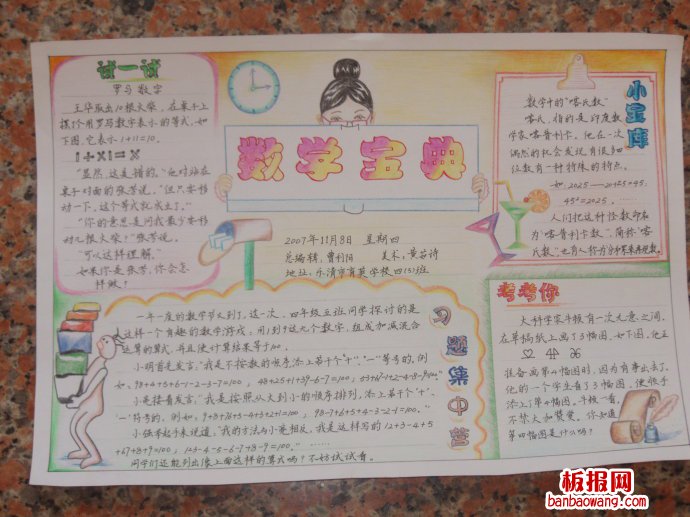 试一试
罗马数字
王华取出10根火柴,在桌子上
摆1个用罗马数字表示的等式,如
下图,它表示1+11=10。
I+XI=X
"显然,这是错的。"他对站在
桌子对面的张芳说,"但只要移
动一下,这个等式就成立了。"
"你的意思是问我最少要移
动几根火柴?"张芳说。
"可以这样理解。"
如果你是张芳,你会怎
样做?
数学宝典
2007年11月8日 星期四
总编辑:曹利阳 美术:黄茹诗
地址:乐清市育英学校四(5)班
小宝库
数学中的"喀氏数"
喀氏,指的是印度数
学家喀普利卡。他在一次
偶然的机会发现有很多
数有一种特殊的特点。
如:2025——20+25=45,
45²=2025。
人们把这种怪数命名
为"喀普利卡数",简称"喀
氏数",也有人称
习题集中营
一年一度的数学节又到了,这一次,四年级五班同学探讨的是
这样一个有趣的数学游戏,用1到9这九个数字,组成加减混合
运算的算式,并且使计算结果等于100。
小明首先发言,"我是不按数的顺序,添上若干个"+"、"-"等号的,例
如,98+4+5+6-1-2-3-7=100;
小亮接着发言,"我是按照从大到小的顺序排列,添上若干个"+"、
"-"符号的,例如,9+8+76+5-4+3+2+1=100; 98-7+6+5+4-3-2-1=100。"
小强举起手来说道,"我的方法与小亮相反,我是这样写的12+3-4+5
+67+8+9=100; 123-4-5-6-7+8-9=100。"
同学们还能列出像上面这样的算式吗?不妨试试看。
考考你
大科学家牛顿有一次无意之间,
在草稿纸上画了3幅图,如下图,他正
准备画第4幅图时,因为有事出去了,
他的一个学生看了3幅图,便顺手
添上了第4幅图,牛顿一看,
不禁大加赞赏。你知道
第四幅图是什么吗?
板报网
banbaowang.com